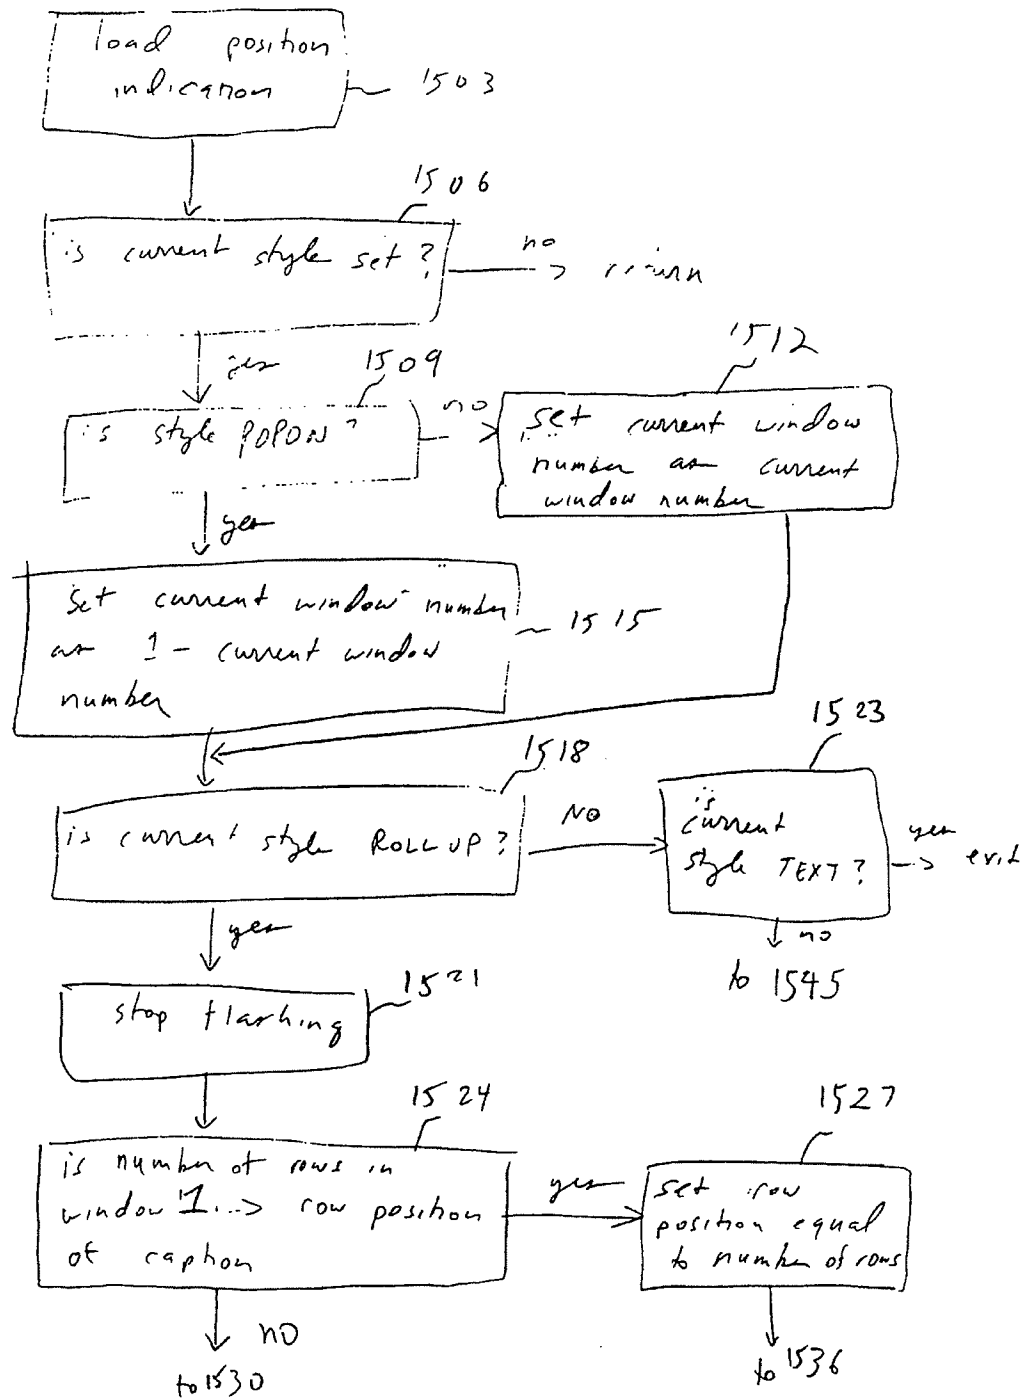 load position
indication
1503
1506
is current style set?
no
return
yes
1509
1512
is style POPON?
no
set current window
number as current
window number
yes
Set current window number
as 1 - current window
number
1515
1518
1523
is current style ROLL UP?
NO
is
current
style TEXT?
yes
exit
yes
no
to 1545
1521
stop flashing
1524
1527
is number of rows in
window 1 > row position
of caption
yes
set row
position equal
to number of rows
NO
to 1530
to 1536